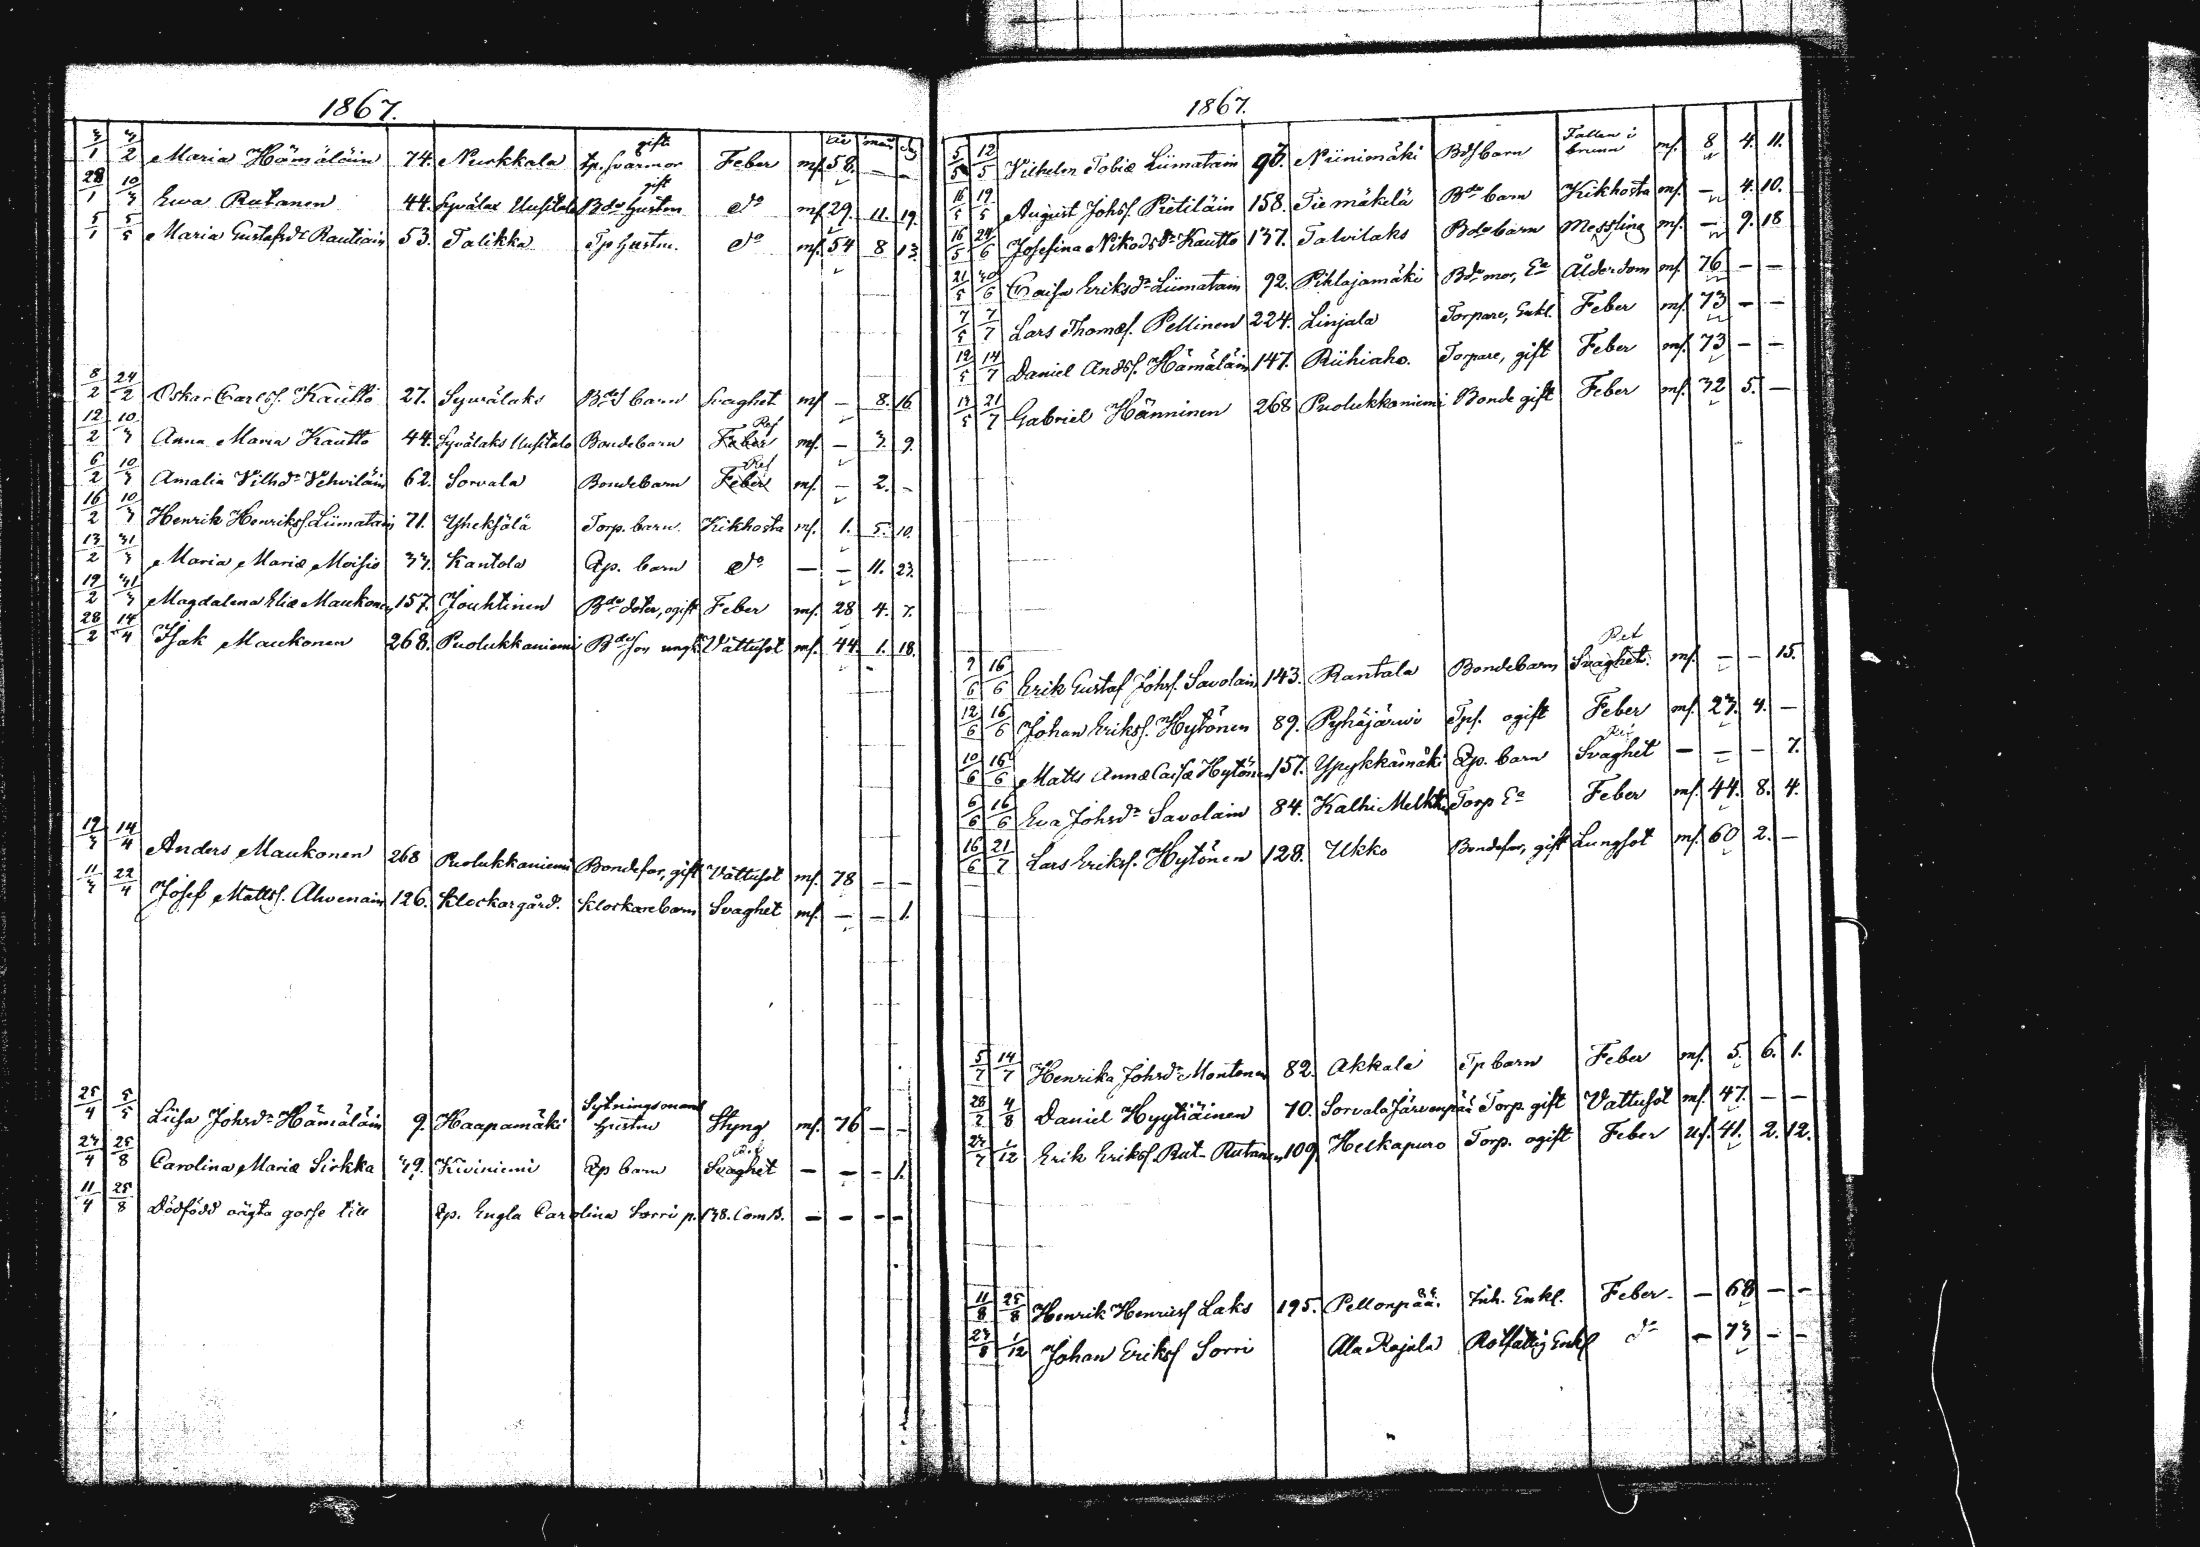 1867.
år mån d.
3/1 3/2 Maria Hämäläin 74. Nurkkala Tp. svärmor gift Feber mf. 58. — —
28/1 10/3 Ewa Rutanen 44. Syvälax Uusitalo Bds hustru gift do mf. 29. 11. 19.
5/1 5/5 Maria Gustafsdr Rautiain 53. Talikka Tp hustru. do mf. 54 8 13.
8/2 24/2 Oskar Carlsf. Kautto 27. Syvälaks Bds barn Svaghet mf — 8. 16
12/2 10/3 Anna Maria Kautto 44. Syvälaks Uusitalo Bondebarn Feber mf. — 3. 9.
6/2 10/3 Amalia Vilhdr Vehviläin 62. Sorvala Bondebarn Feber mf. — 2. –
16/2 10/3 Henrik Henriksf Liimatain 71. Yheksälä Torp. barn. Kikhosta mf. 1. 5. 10.
13/2 31/3 Maria Mariæ Moisio 33. Kantola Qp. barn do — — 11. 23.
19/2 31/3 Magdalena Eliæ Maukonen 157. Jouhtinen Bds doter, ogift Feber mf. 28 4. 7.
28/2 14/4 Isak Maukonen 268. Puolukkaniemi Bds son ungk. Vattusot mf. 44. 1. 18.
19/3 14/4 Anders Maukonen 268 Puolukkaniemi Bondefar, gift Vattusot mf. 78 — —
11/3 22/4 Josef Mattsf. Ahvenain 126. Klockargård. Klockarebarn Svaghet mf. — — 1.
25/4 5/5 Liisa Johsdr Hämäläin 9. Haapamäki Sytningsmans hustru Styng mf. 76 — —
23/4 25/8 Carolina Mariæ Sirkka 39. Kiviniemi Qp barn Svaghet — — — 1.
11/4 25/8 Dödfödd oägta gosse till Qp. Engla Carolina Sorri p. 138. Com B. — — — —
1867.
5/5 12/5 Vilhelm Tobiæ Liimatain 96. Niinimäki Bds barn Fallen i brunn mf. 8 4. 11.
16/5 19/5 August Johsf. Pietiläin 158. Tiemäkilä Bds barn Kikhosta mf. — 4. 10.
16/5 24/6 Josefina Nikodsdr Kautto 137. Talvilaks Bds barn Messling mf. — 9. 18
21/5 30/6 Caisa Eriksdr Liimatain 92. Pihlajamäki Bds mor, Ea Ålderdom mf. 76 — —
7/5 7/7 Lars Thomæf. Pellinen 224. Linjala Torpare, Enkl. Feber mf. 73 — —
12/5 14/7 Daniel Andsf. Hämäläin 147. Riihiaho. Torpare, gift Feber mf. 73 — —
13/5 21/7 Gabriel Hänninen 268 Puolukkaniemi Bonde gift Feber mf. 32 5. —
9/6 16/6 Erik Gustaf Johsf. Savolain 143. Rantala Bondebarn Svaghet. mf. — — 15.
12/6 16/6 Johan Eriksf. Hytönen 89. Pyhäjärvi Tpf. ogift Feber mf. 23. 4. —
10/6 16/6 Matts Annæ Caisæ Hytönen 157. Ypykkämäki Qp. barn Svaghet — — — 7.
6/6 16/6 Eva Johsdr Savolain 84. Torp Ea Feber mf. 44. 8. 4.
16/6 21/7 Lars Eriksf. Hytönen 128. Ukko Bondefar, gift Lungsot mf. 60 2. —
5/7 14/7 Henrika Johsdr Montonen 82. Akkala Tp barn Feber mf. 5. 6. 1.
28/7 4/8 Daniel Hyytiäinen 70. Sorvala Järvenpää Torp. gift Vattusot mf. 47. — —
23/7 1/12 Erik Eriksf. Rut- Rutanen 109. Helkapuro Torp. ogift Feber uf. 41. 2. 12.
11/8 25/8 Henrik Henricsf Laks 195. Pellonpää. Inh. Enkl. Feber. — 68 — —
23/8 1/12 Johan Eriksf Sorri Ala Kajala Rotfattig Enkl do — 73 — —